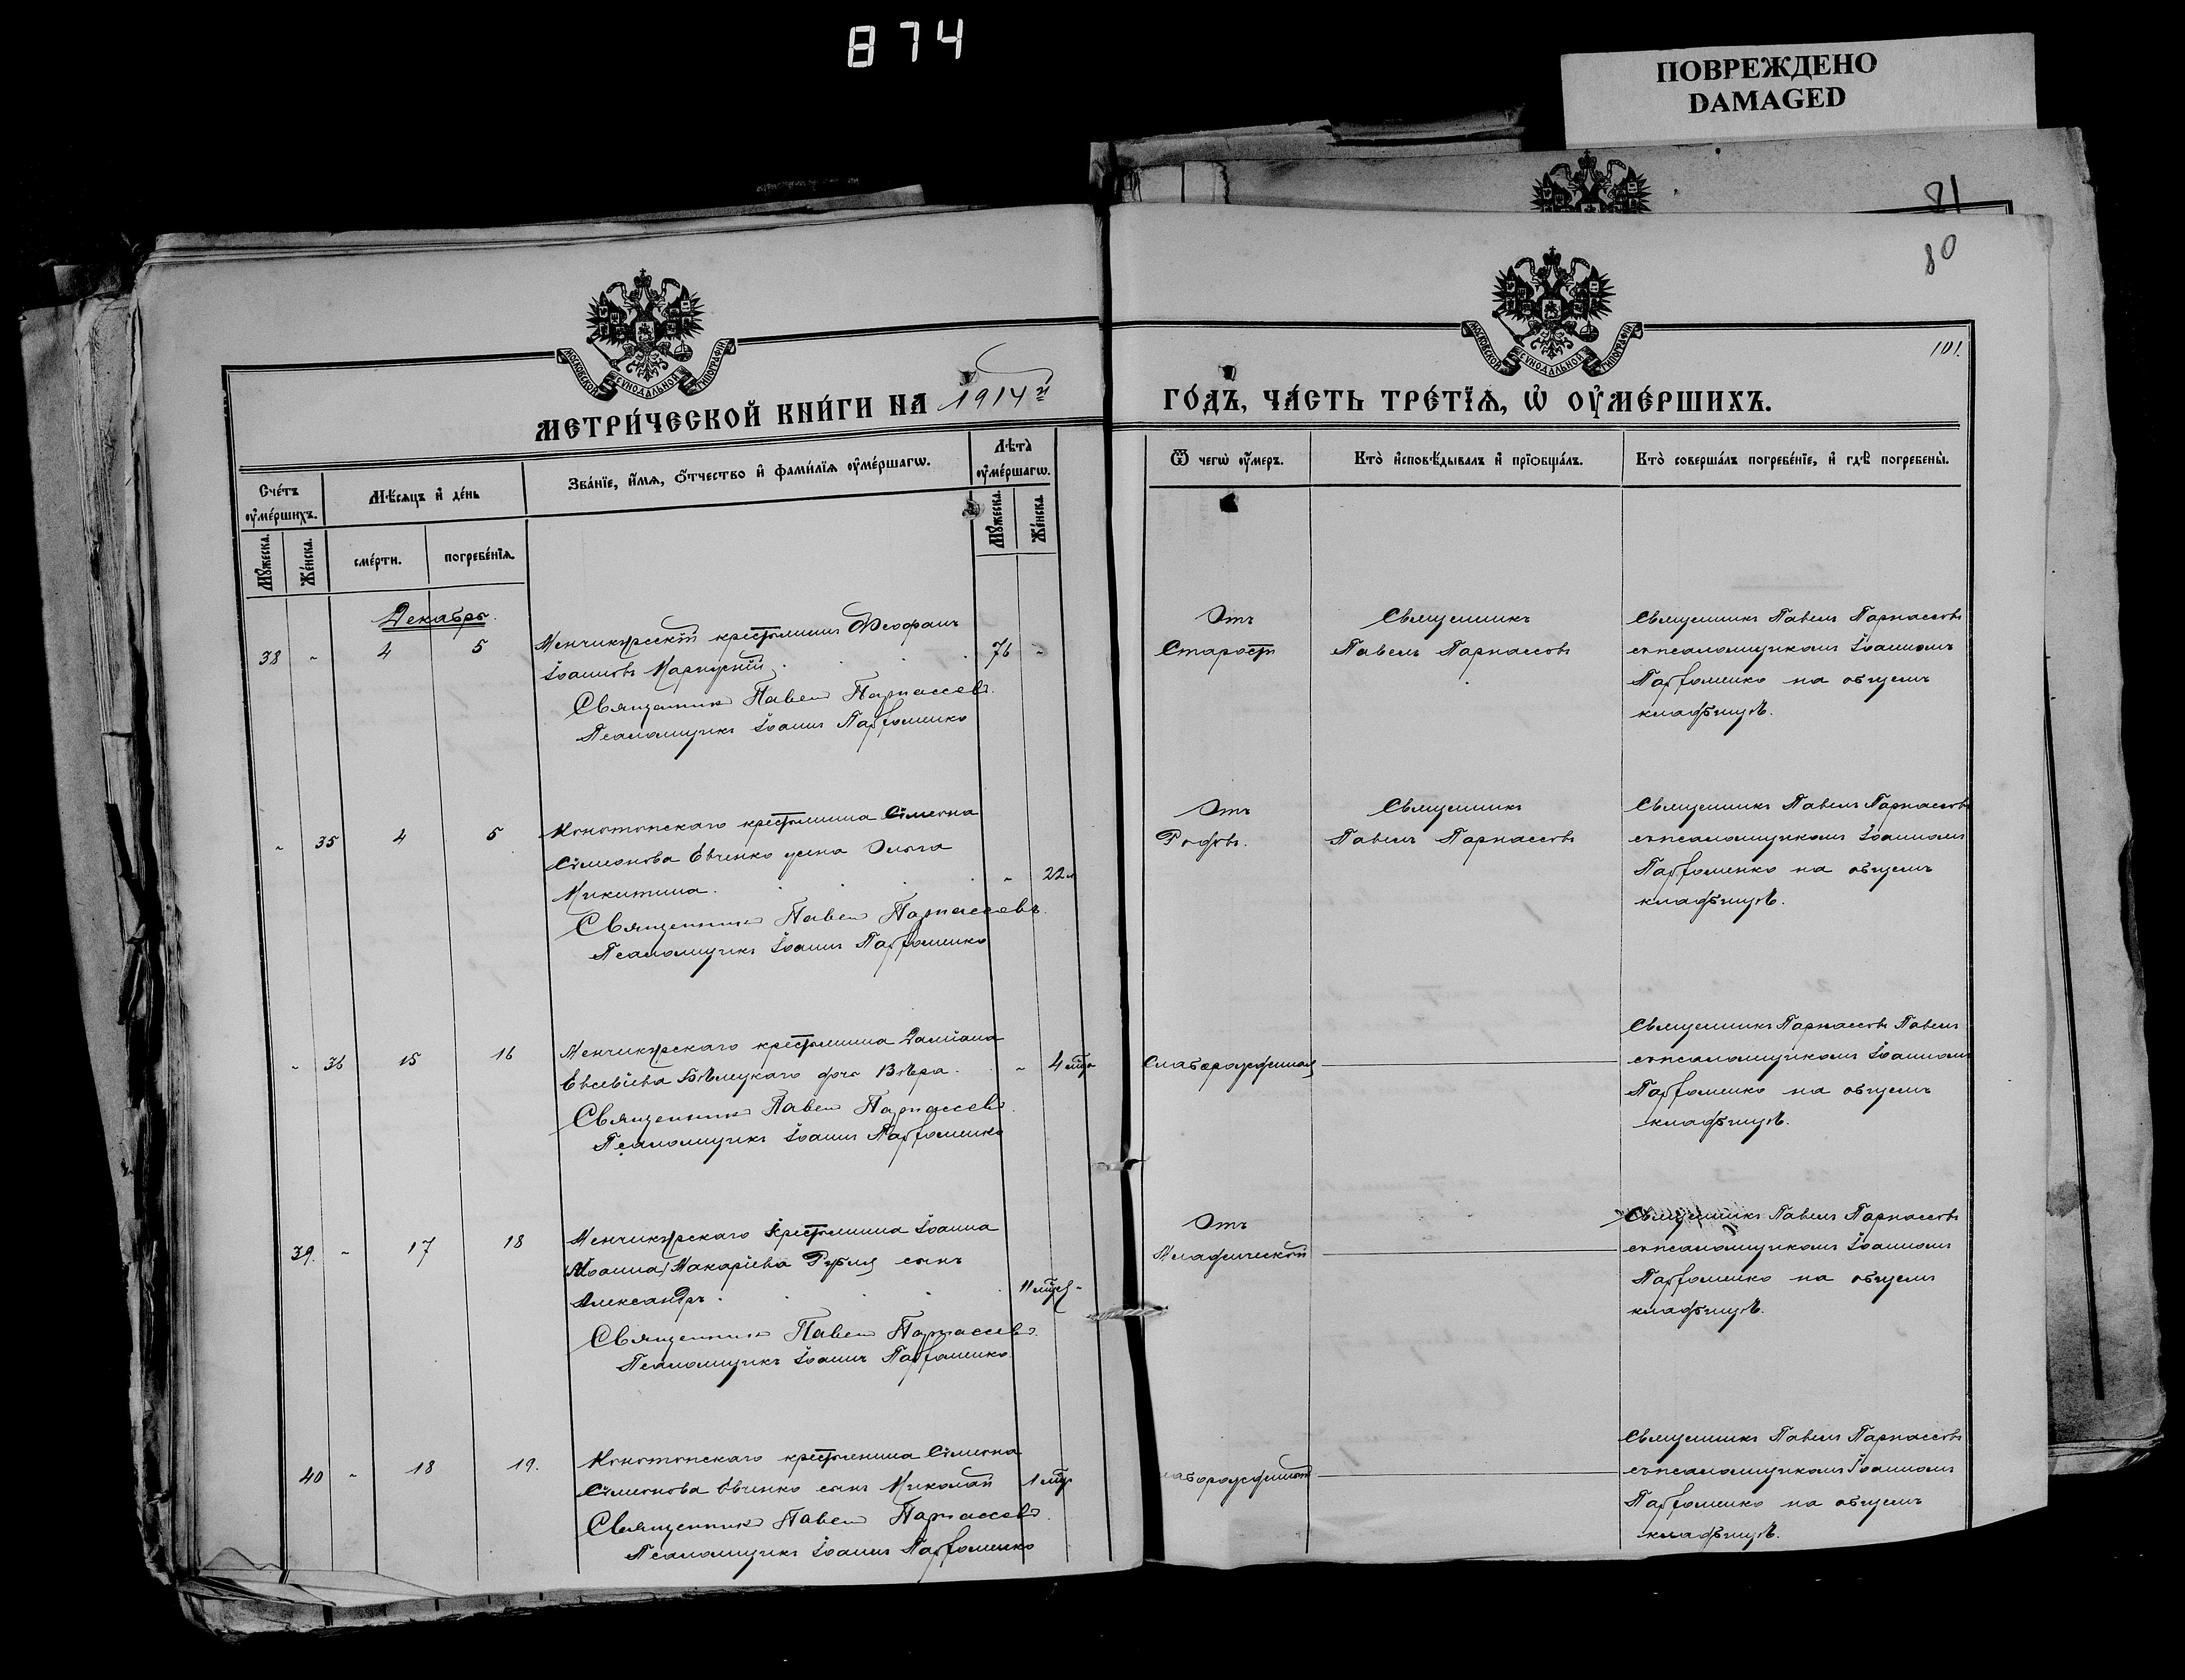 874
ПОВРЕЖДЕНО
DAMAGED
81
80
МОСКОВСКОЙ СѴНОДАЛЬНОЙ ТИПОГРАФІИ
МОСКОВСКОЙ СѴНОДАЛЬНОЙ ТИПОГРАФІИ
101.
МЕТРИ́ЧЕСКОЙ КНИ́ГИ НА 1914й
ГО́ДЪ, ЧА́СТЬ ТРЕ́ТЇѦ, Ѡ҆ ОУ҆МЕ́РШИХЪ.
Сче́тъ
оу҆ме́ршихъ.
Мѣ́сѧцъ и҆ де́нь
Зва́нїе, и҆́мѧ, ѻ҆́тчество и҆ фами́лїѧ оу҆ме́ршагѡ.
Лѣ́та
оу҆ме́ршагѡ.
Мꙋ́жеска.
Же́нска.
сме́рти.
погребе́нїѧ.
Мꙋ́жеска.
Же́нска.
Ѿ чегѡ̀ оу҆́меръ.
Кто̀ и҆сповѣ́дывалъ и҆ прїѡбща́лъ.
Кто̀ соверша́лъ погребе́нїе, и҆ гдѣ̀ погребены̀.
Декабрь.
38 - 4 5 Менчикурскій крестьянинъ Ѳеофанъ
Іоанновъ Карпускій 76 -
Священникъ Павелъ Парнассовъ.
Псаломщикъ Іоаннъ Парфоменко
Отъ
Старости
Священникъ
Павелъ Парнассовъ
Священникъ Павелъ Парнассовъ
съ псаломщикомъ Іоанномъ
Парфоменко на общемъ
кладбищѣ.
- 35 4 5 Конотопскаго крестьянина Симеона
Симеонова Евченко жена Ольга
Никитина. - 22 л
Священникъ Павелъ Парнассовъ.
Псаломщикъ Іоаннъ Парфоменко
Отъ
Родовъ.
Священникъ
Павелъ Парнассовъ
Священникъ Павелъ Парнассовъ
съ псаломщикомъ Іоанномъ
Парфоменко на общемъ
кладбищѣ.
- 36 15 16 Менчикурскаго крестьянина Даміана
Евсевіева Бѣлецкаго дочь Вѣра. - 4 мѣс
Священникъ Павелъ Парнассовъ.
Псаломщикъ Іоаннъ Парфоменко
Слаборожденная
Священникъ Парнассовъ Павелъ
съ псаломщикомъ Іоанномъ
Парфоменко на общемъ
кладбищѣ.
39. - 17 18 Менчикурскаго крестьянина Іоанна
Макаріева сынъ
Александръ. 11 -
Священникъ Павелъ Парнассовъ.
Псаломщикъ Іоаннъ Парфоменко.
Отъ
Младенческой
Священникъ Павелъ Парнассовъ
съ псаломщикомъ Іоанномъ
Парфоменко на общемъ
кладбищѣ.
40 - 18 19. Конотопскаго крестьянина Симеона
Симеонова Евченко сынъ Николай 1 мѣс
Священникъ Павелъ Парнассовъ.
Псаломщикъ Іоаннъ Парфоменко
лаборожденный
Священникъ Павелъ Парнассовъ
съ псаломщикомъ Іоанномъ
Парфоменко на общемъ
кладбищѣ.